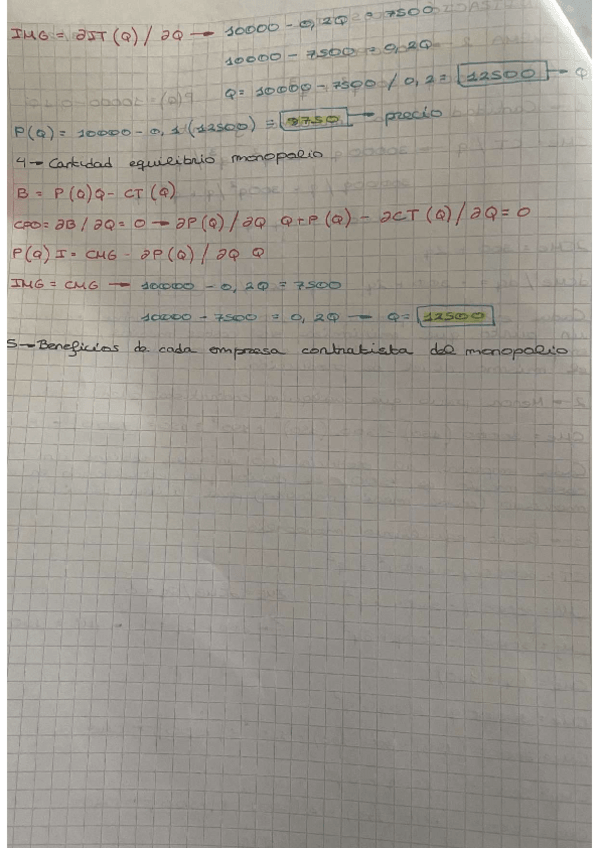 IMG = ∂IT (Q) / ∂Q → 10000 - 0,2Q = 7500
10000 - 7500 = 0,2Q
Q = 10000 - 7500 / 0,2 = 12500 → Q
P(Q) = 10000 - 0,1 (12500) = 8750 → precio
4 → Cantidad equilibrio monopolio
B = P(Q)Q - CT (Q)
CPO = ∂B / ∂Q = 0 → ∂P(Q) / ∂Q Q + P(Q) - ∂CT (Q) / ∂Q = 0
P(Q) I = CMG - ∂P(Q) / ∂Q Q
IMG = CMG → 10000 - 0,2Q = 7500
10000 - 7500 = 0,2Q → Q = 12500
5 → Beneficios de cada empresa contratista del monopolio